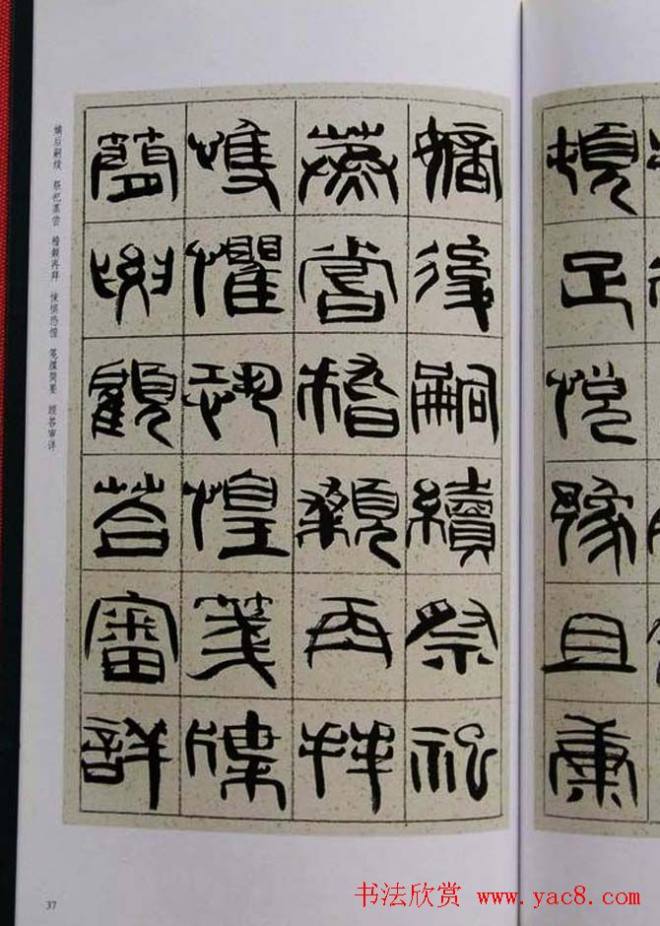 頓足悦豫且康
嫡後嗣續祭祀
蒸嘗稽顙再拜
悚懼恐惶箋牒
簡要顧答審詳
嫡后嗣续 祭祀蒸尝 稽颡再拜 悚惧恐惶 笺牒简要 顾答审详
37
书法欣赏 www.yac8.com